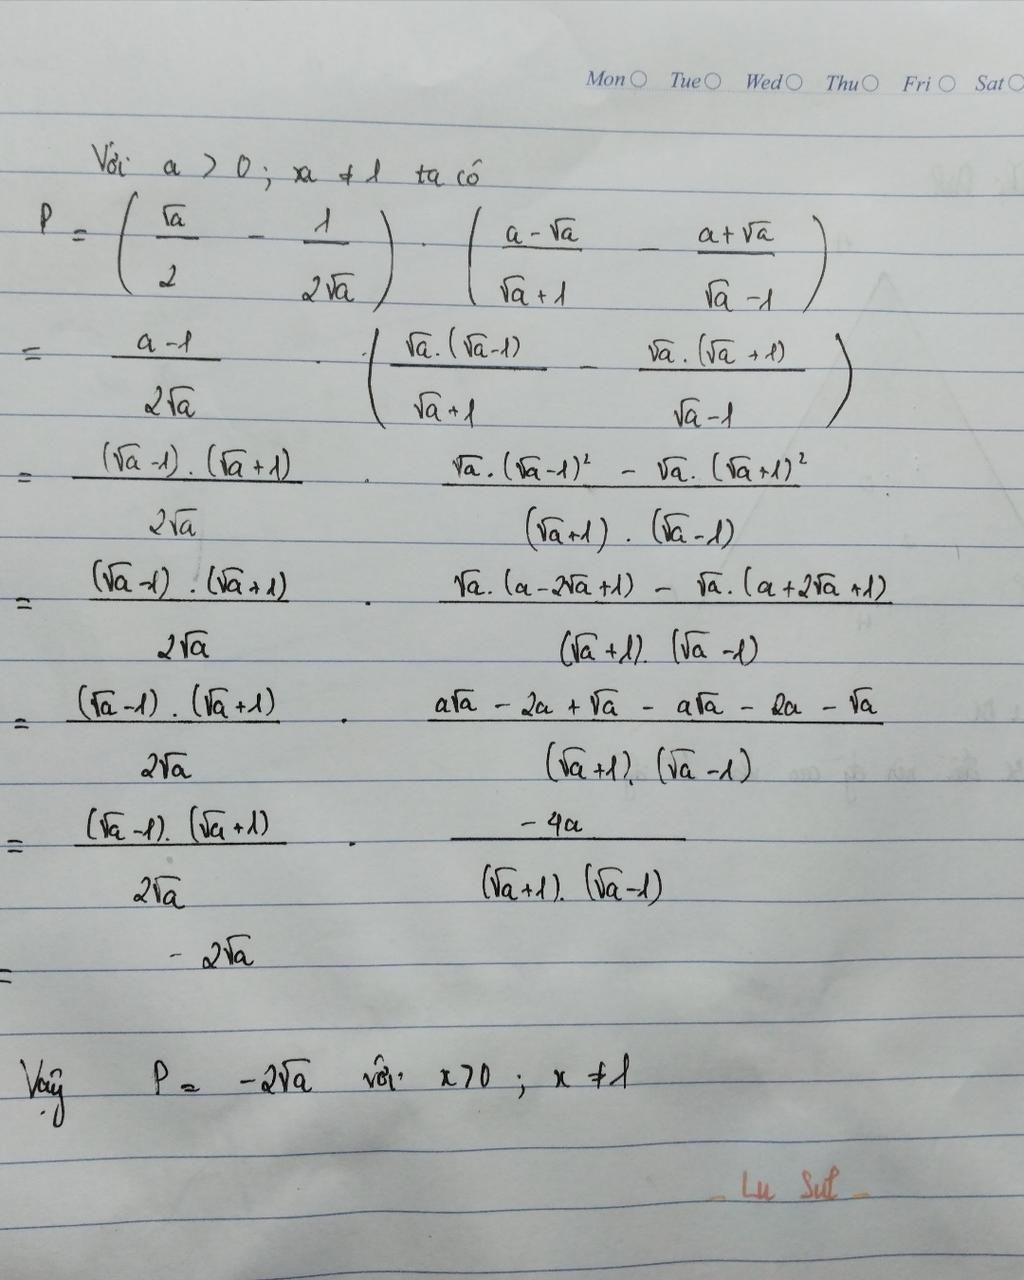 Mon Tue Wed Thu Fri Sat
Với a > 0 ; xa ≠ 1 ta có
P = ( √a/2 - 1/2√a ) . ( a - √a/√a + 1 - a + √a/√a - 1 )
= a - 1/2√a . ( √a . (√a - 1)/√a + 1 - √a . (√a + 1)/√a - 1 )
= (√a - 1) . (√a + 1)/2√a . √a . (√a - 1)² - √a . (√a + 1)²/(√a + 1) . (√a - 1)
= (√a - 1) . (√a + 1)/2√a . √a . (a - 2√a + 1) - √a . (a + 2√a + 1)/(√a + 1) . (√a - 1)
= (√a - 1) . (√a + 1)/2√a . a√a - 2a + √a - a√a - 2a - √a/(√a + 1) . (√a - 1)
= (√a - 1) . (√a + 1)/2√a . - 4a/(√a + 1) . (√a - 1)
= - 2√a
Vậy P = - 2√a với x > 0 ; x ≠ 1